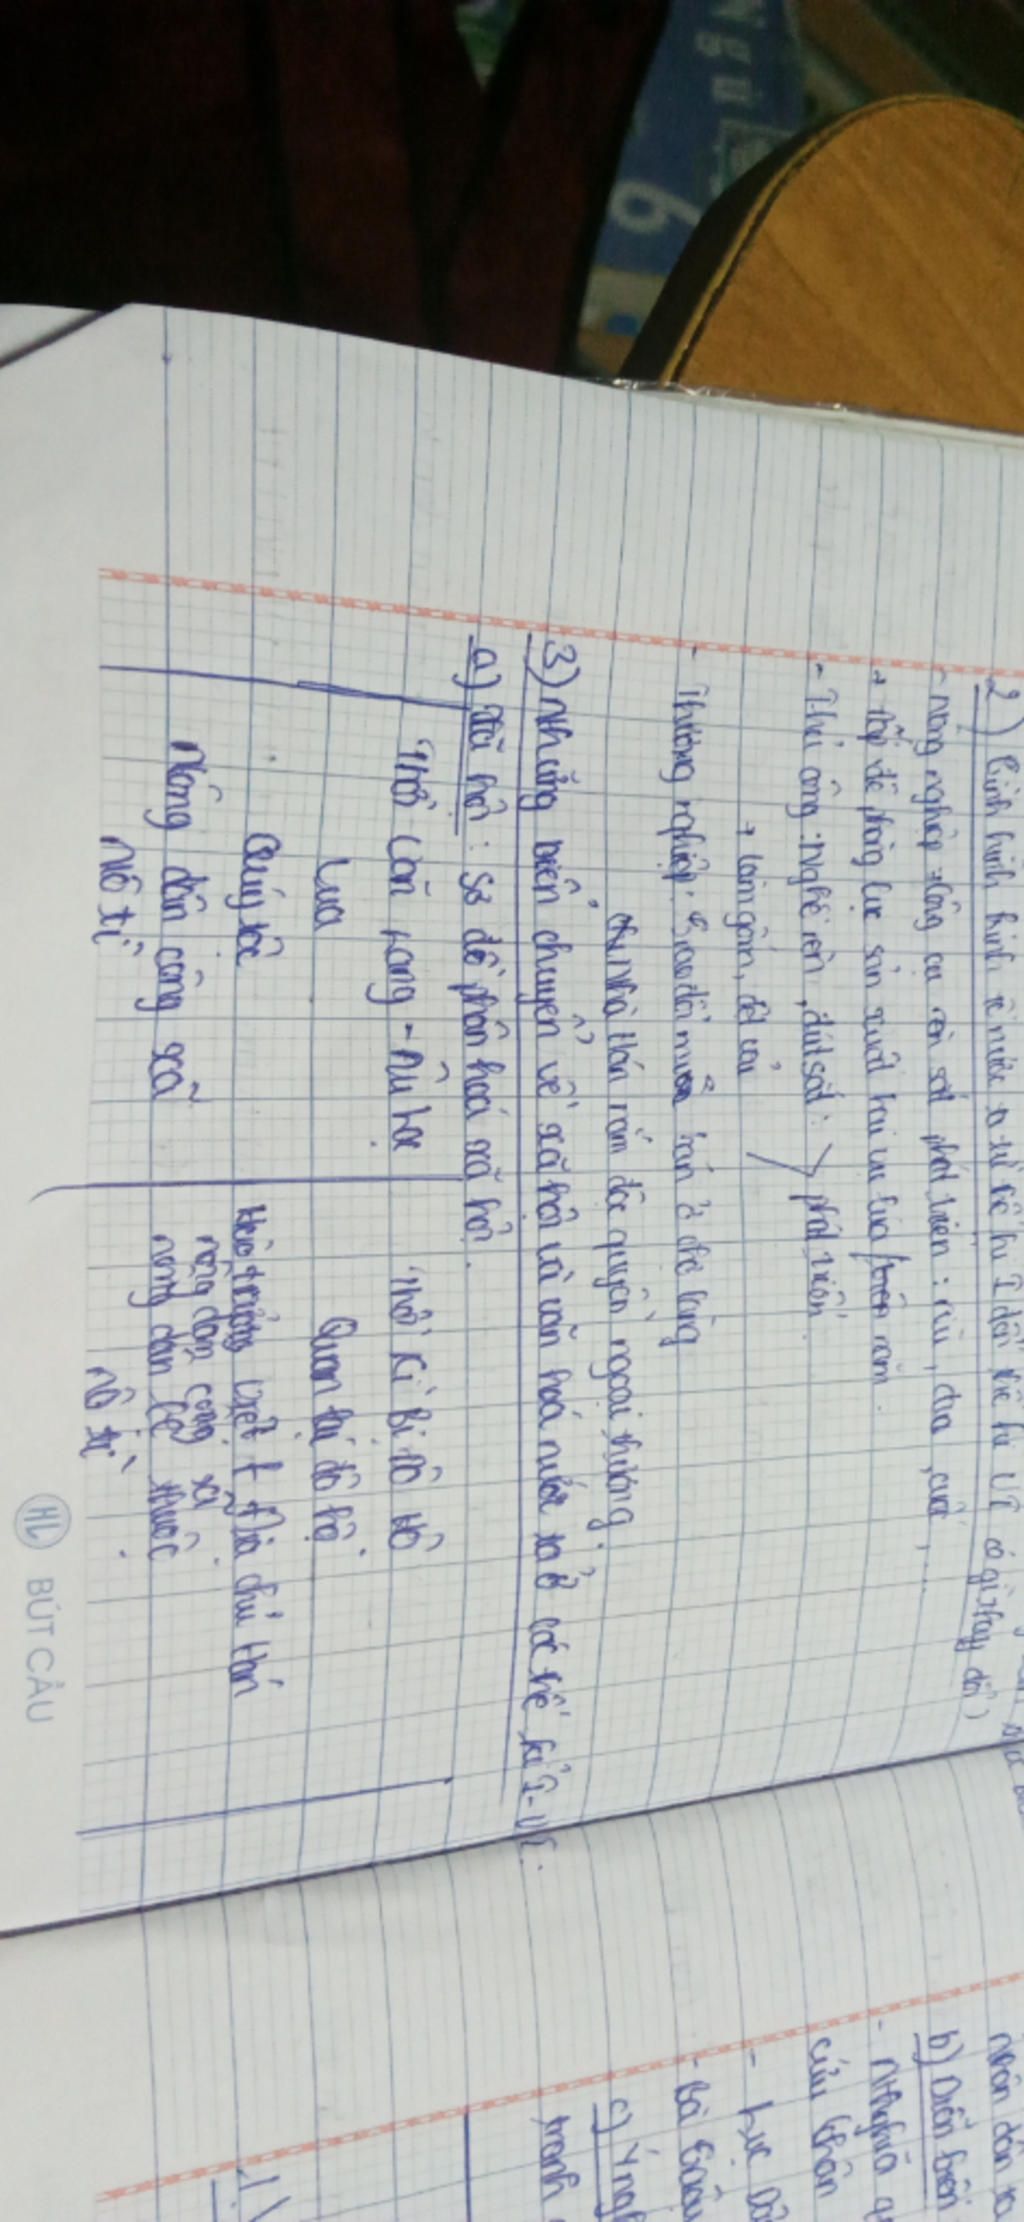 2) Tình hình kinh tế nước ta từ thế kỉ I đến thế kỉ VI có gì thay đổi)
- Nông nghiệp công cụ rèn sắt phát triển: rìu, dao, cuốc, ...
+ đắp đê phòng lụt sản xuất hai vụ lúa trên năm.
- Thủ công: Nghề rèn, đúc sắt: > phát triển
+ làm gốm, dệt vải
- Thương nghiệp: trao đổi mua bán ở chợ làng
Nhà Hán nắm độc quyền ngoại thương
3) Những biến chuyển về xã hội và văn hoá nước ta ở các thế kỉ I-VI.
a) Xã hội: sơ đồ phân hoá xã hội.
Thời Văn Lang - Âu Lạc
Thời kì bị đô hộ
Vua
Quan lại đô hộ
Quý tộc
Hào trưởng Việt + Địa chủ Hán
Nông dân công xã
nông dân công xã
nông dân lệ thuộc
Nô tì
nô tì
HL BÚT CẦU
nhân dân
b) Diễn biến
- Nghĩa
của
- Lúc
- Bà
c) Ý
tranh
N
gữ
6